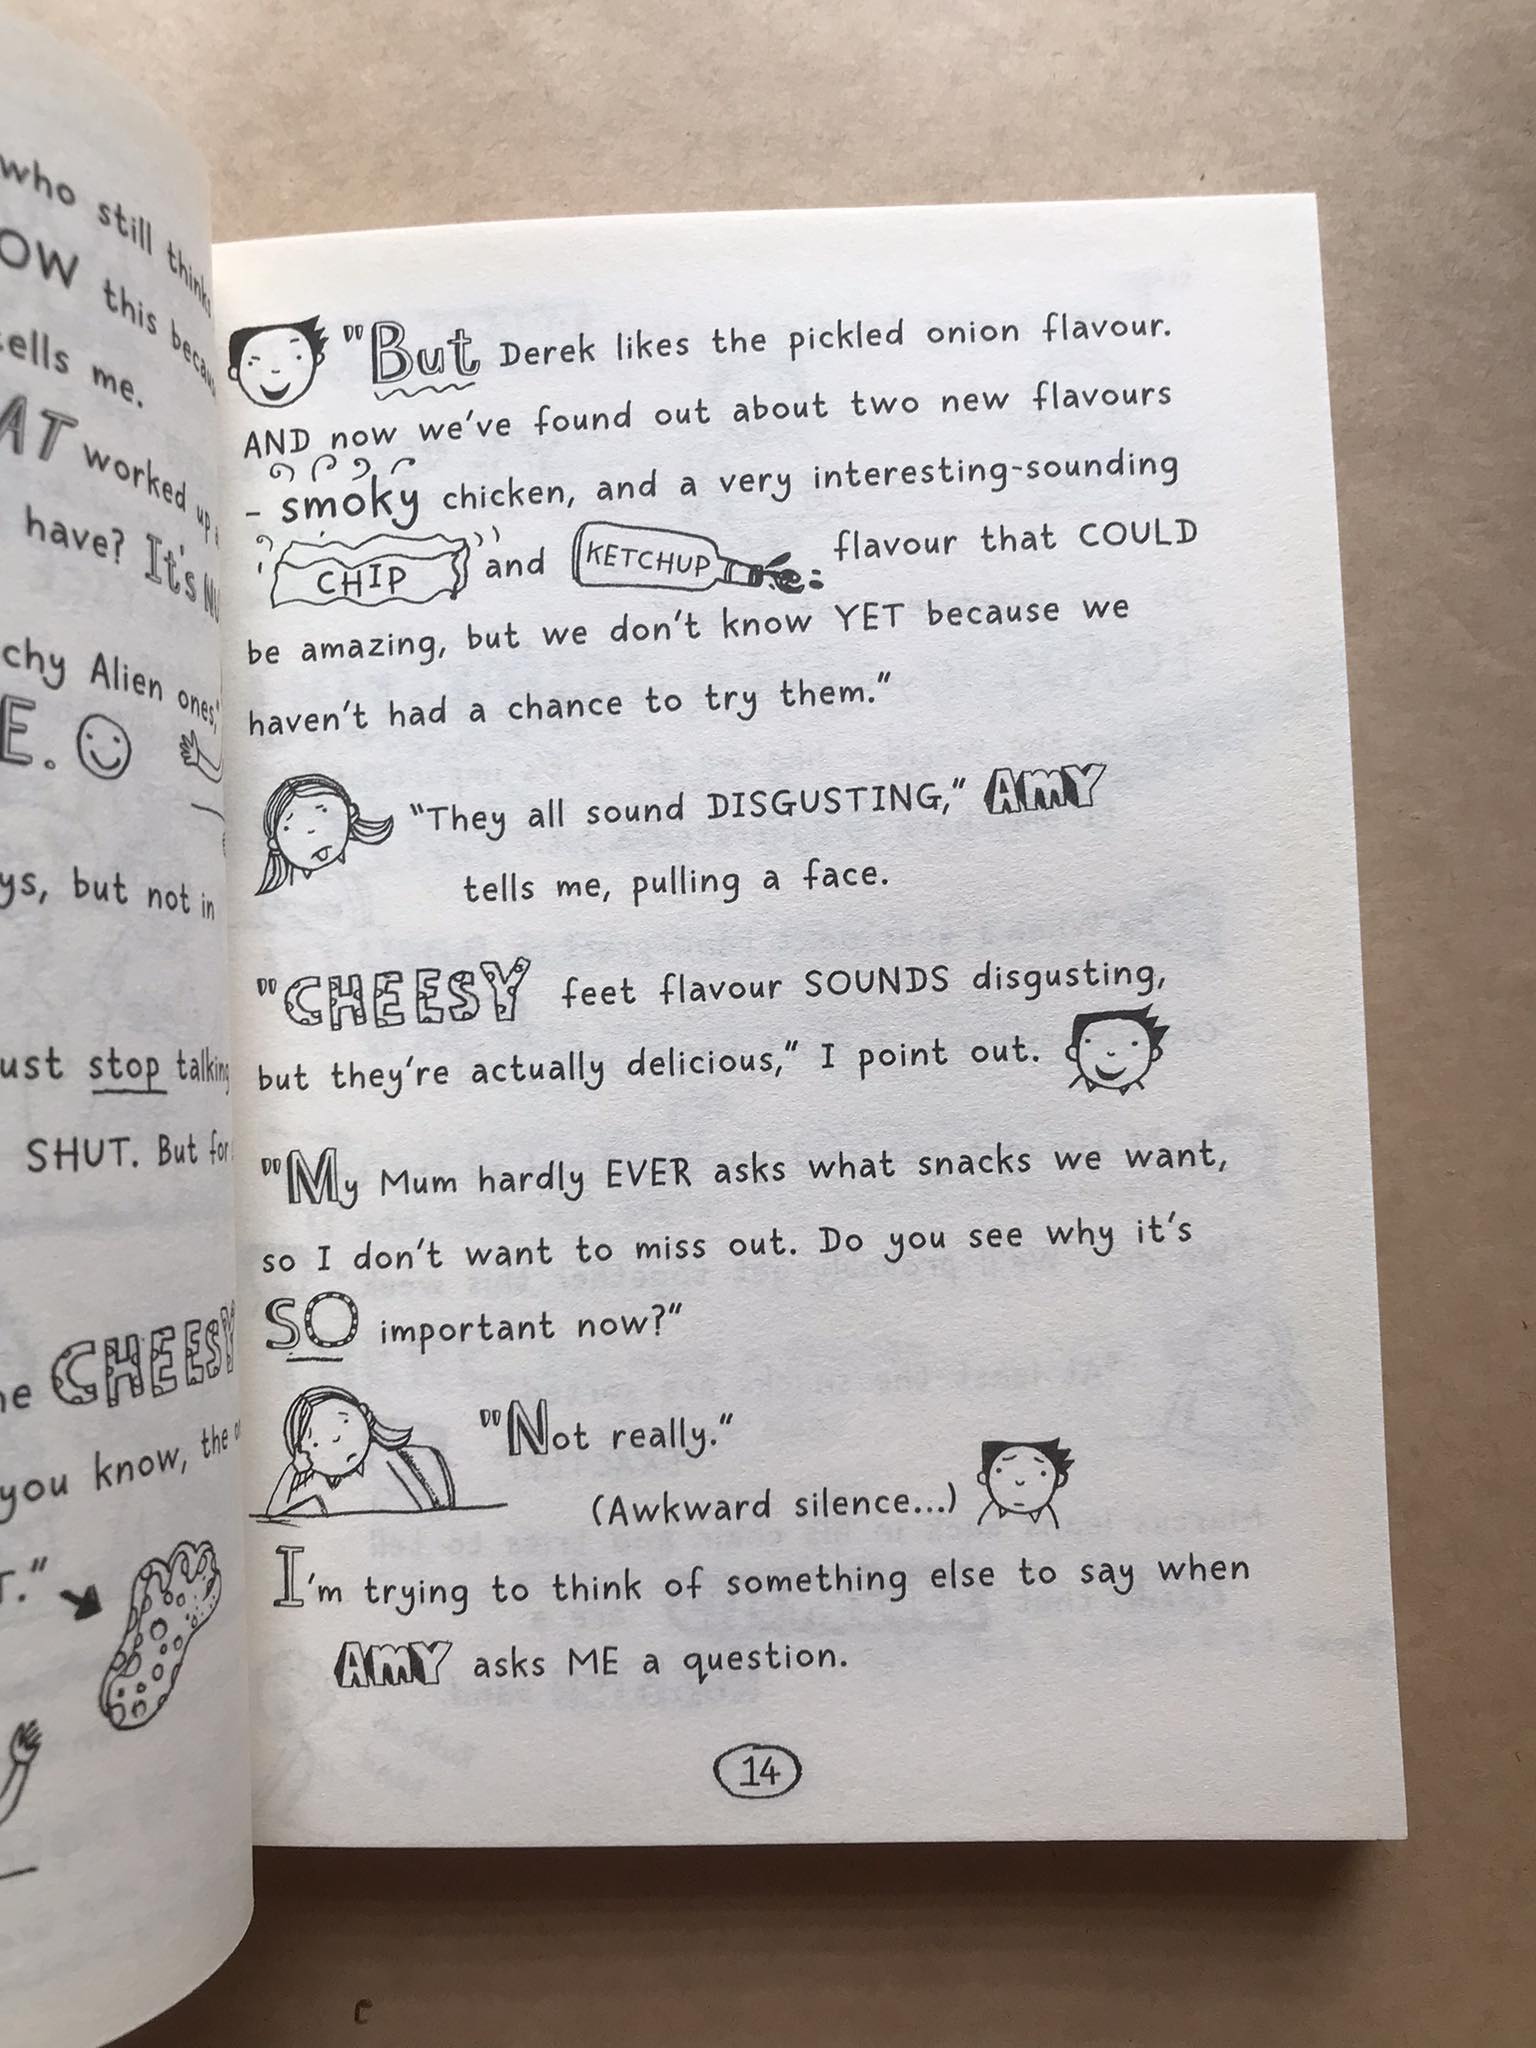 who still thinks
OW this becau
tells me.
AT worked up
have? It's
chy Alien ones,"
E.
ys, but not in
ust stop talking
SHUT. But for
CHEESY
you know, the
"But Derek likes the pickled onion flavour.
AND now we've found out about two new flavours
- smoky chicken, and a very interesting-sounding
CHIP and KETCHUP flavour that COULD
be amazing, but we don't know YET because we
haven't had a chance to try them."
"They all sound DISGUSTING," AMY
tells me, pulling a face.
"CHEESY feet flavour SOUNDS disgusting,
but they're actually delicious," I point out.
"My Mum hardly EVER asks what snacks we want,
so I don't want to miss out. Do you see why it's
SO important now?"
"Not really."
(Awkward silence...)
I'm trying to think of something else to say when
AMY asks ME a question.
14